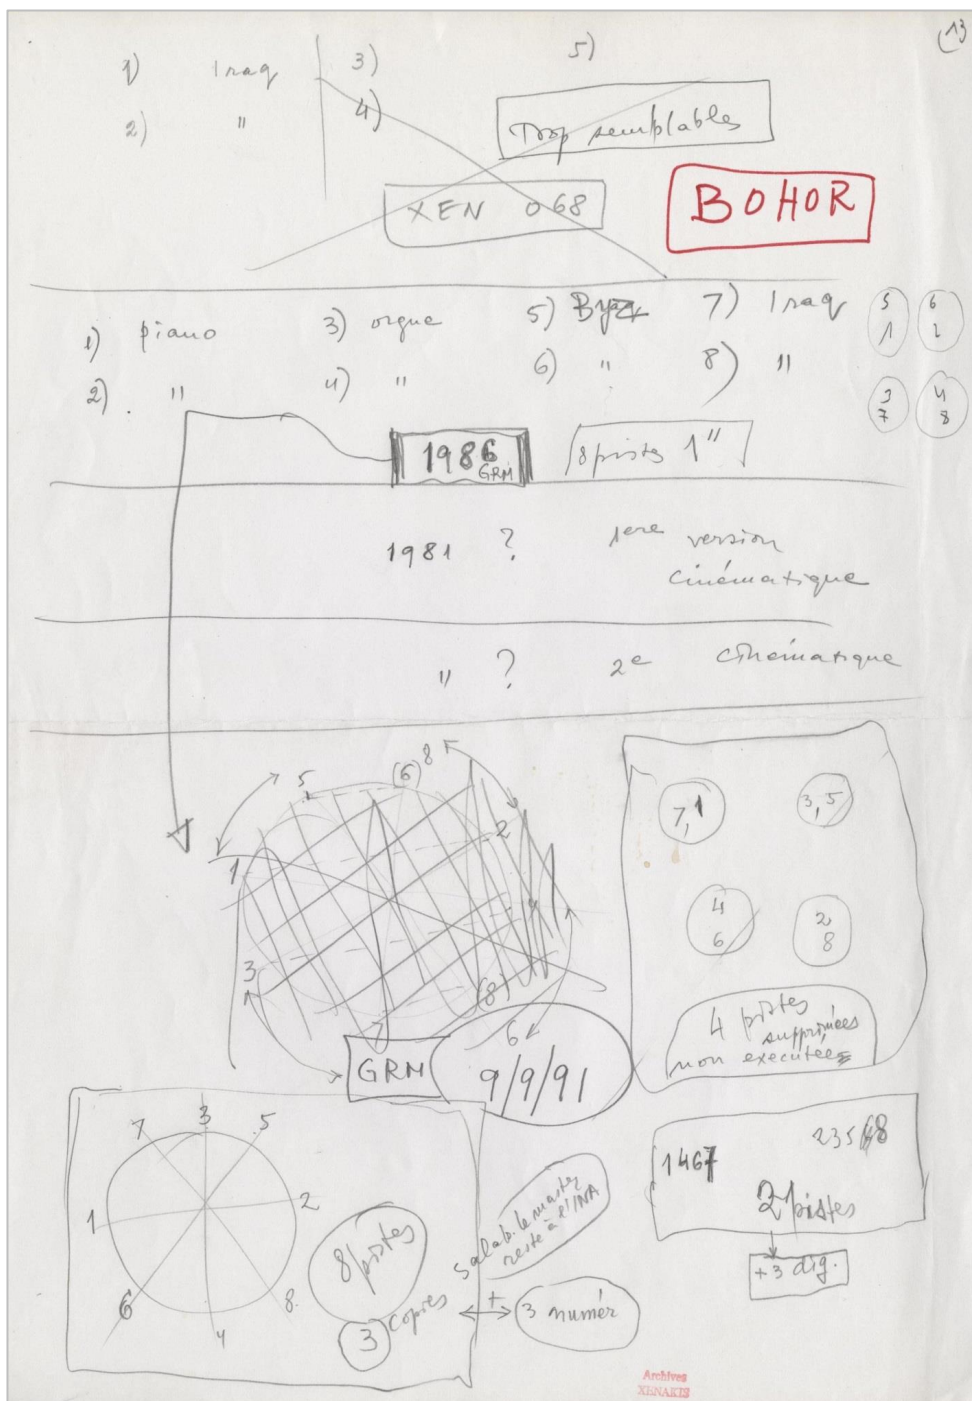 13
1) Iraq 3) 5)
2) " 4)
Trop semplables
XEN 068
BOHOR
1) piano 3) orgue 5) Byz 7) Iraq
2) " 4) " 6) " 8) "
5 6
1 2
3 4
7 8
1986
GRM
8 pistes 1"
1981 ? 1ere version
cinématique
" ? 2e cinématique
5 (6) 8
1 2
3 4
7 (8)
6
GRM
9/9/91
7,1 3,5
4 2
6 8
4 pistes
supprimées
non executées
7 3 5
1 2
6 4 8
8 pistes
3 copies
Salab. le master
reste à l'INA
+
3 numér
1467 23568
2 pistes
+3 dig.
Archives
XENAKIS